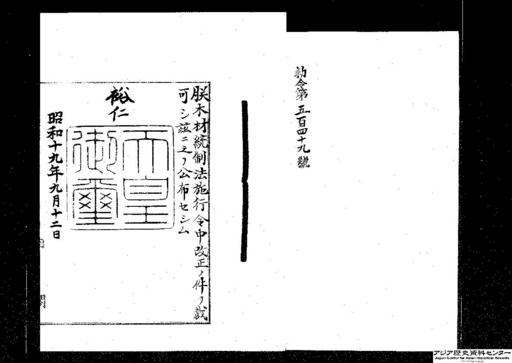 勅令第五百四十九號
朕木材統制法施行令中改正ノ件ヲ裁
可シ茲ニ之ヲ公布セシム
裕仁
天皇
御璽
昭和十九年九月十二日
アジア歴史資料センター
Japan Center for Asian Historical Records